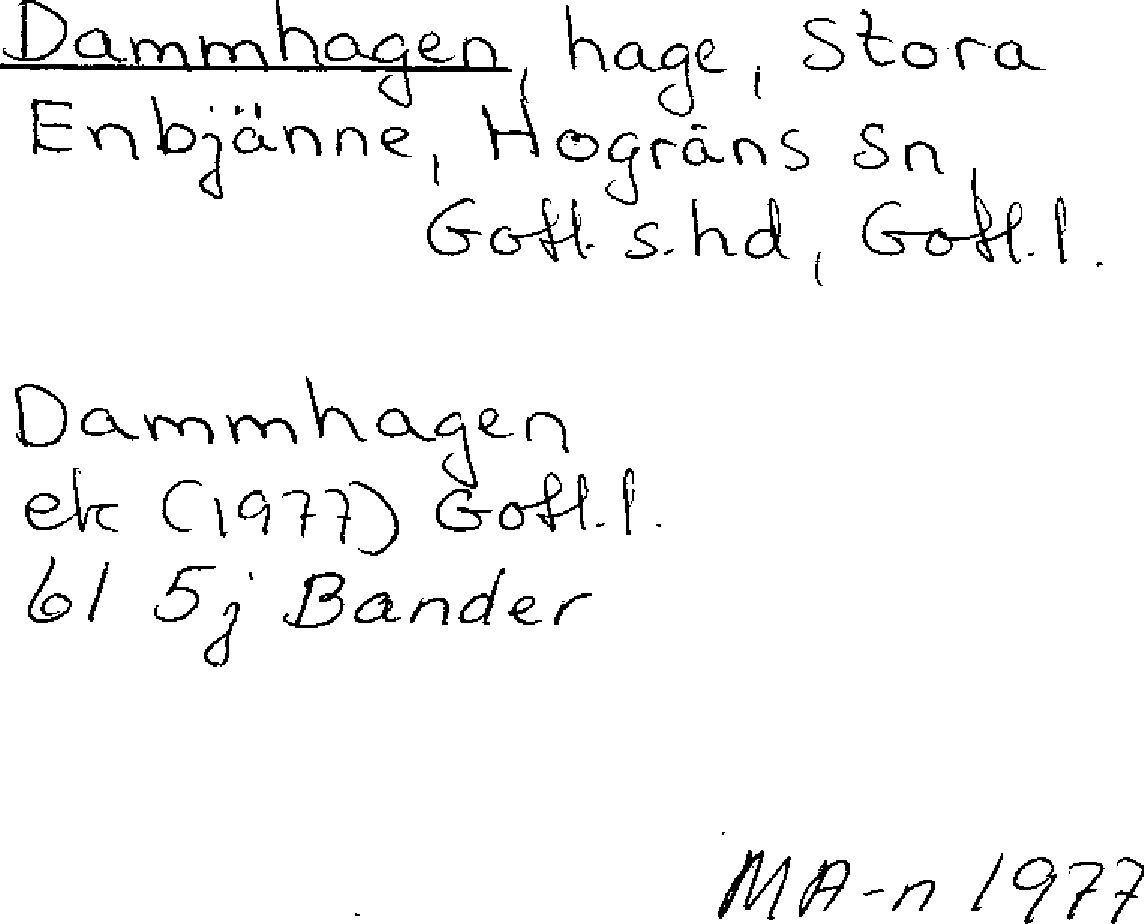 Dammhagen, hage, Stora
Enbjänne, Hogräns sn,
Gotl. s. hd, Gotl. l.
Dammhagen
ek (1977) Gotl. l.
6I 5j Bander
MA-n 1977